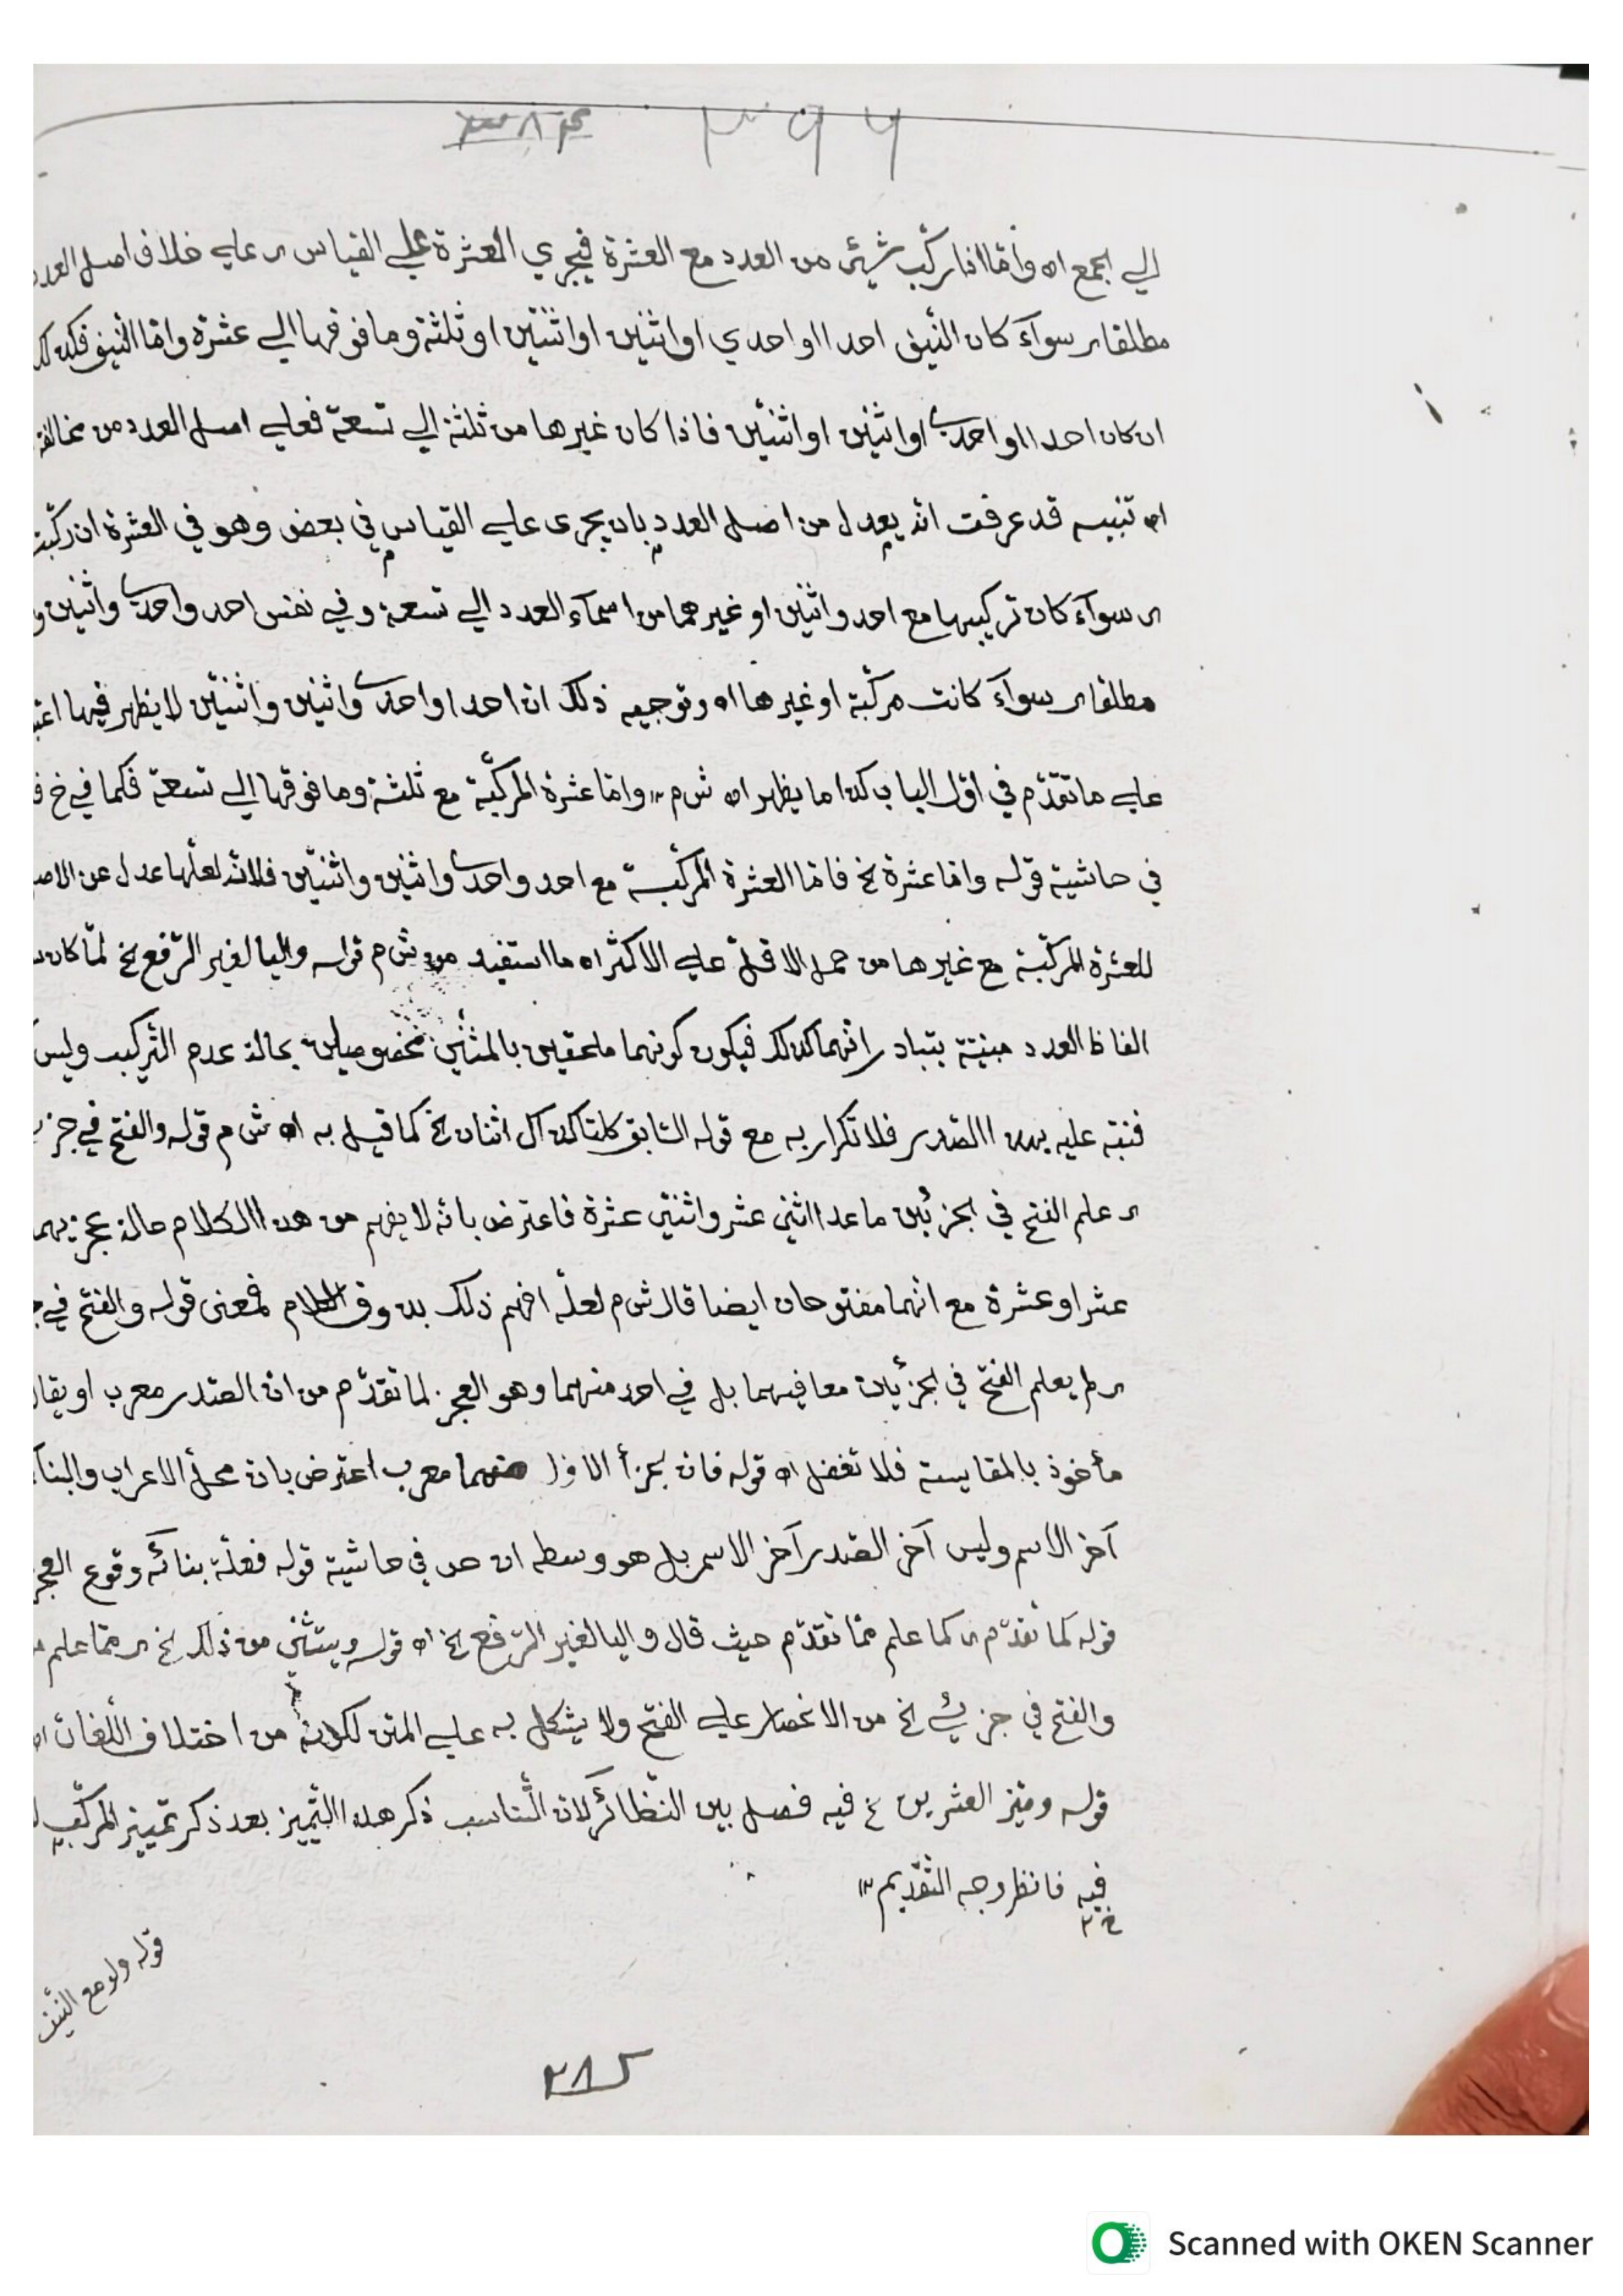 ٣٩٦ ٣٨٤
الي الجمع اه وأمّا اذا ركّب شيئ من العدد مع العشرة فيجري العشرة علي القياس ای علي خلاف اصل العدد
مطلقا ای سوآء كان النيّف احدا او احدي او اثنين او اثنتين او ثلثة وما فوقها الي عشرة وامّا النيّف فكذلك
ان كان احدا او احدی او اثنين او اثنتين فاذا كان غيرها من ثلثة الي تسعة فعلي اصل العدد من مخالفة
اه تنبيه قد عرفت انّه يعدل من اصل العدد بان يجری علي القياس في بعض وهو في العشرة ان ركّبت
ای سوآء كان تركيبها مع احد واثنين او غيرهما من اسمآء العدد الي تسعة وفي نفس احد واحدی واثنين و
مطلقا ای سوآء كانت مركّبة او غيرها اه وتوجيه ذلك ان احدا واحدی واثنين واثنتين لا يظهر فيها
علي ما تقدّم في اوّل الباب كذا ما يظهر اه ش م ١٢ وامّا عشرة المركّبة مع ثلثة وما فوقها الي تسعة فكما في خ
في حاشية قوله وامّا عشرة لخ فامّا العشرة المركّبة مع احد واحدی واثنين واثنتين فلانّه لعلّها عدل عن
للعشرة المركّبة مع غيرها من حمل الاقلّ علي الاكثر اه ما استفيد من ش م قوله واليا لغير الرّفع لخ لمّا كان
الفاظ العدد مبنيّة يتبادر انّهما كذلك فيكون كونهما ملحقين بالمثنّي مخصوصين بحالة عدم التّركيب وليس
فنبّه عليه بهذا القدر فلا تكرار به مع قوله السّابق كلتا كذاك اثنان لخ كما قيل به اه ش م قوله والفتح في
ای علم الفتح في الجزئين ما عدا اثني عشر واثنتي عشرة فاعترض بانّه لا يفهم من هذا الكلام حالة عجزيهما
عشر او عشرة مع انّهما مفتوحان ايضا قال ش م لعلّه افهم ذلك بذوق الكلام فمعنی قوله والفتح في
ای لم يعلم الفتح في الجزئين معا فيهما بل في احد منهما وهو العجز لما تقدّم من انّ الصّدر معرب او يقال
مأخوذ بالمقايسة فلا تغفل اه قوله فان الجزأ الاوّل منهما معرب اعترض بان محلّ الاعراب والبنآ
آخر الاسم وليس آخر الصّدر آخر الاسم بل هو وسطه ان في حاشية قوله فعلّة بنائه وقوع العجز
قوله كما تقدّم ای كما علم ممّا تقدّم حيث قال واليا لغير الرّفع لخ اه قوله ويستثني من ذلك لخ ای ممّا علم
والفتح في جزئي لخ من الانحصار علي الفتح ولا يشكل به علي المتن لكونه من اختلاف اللّغات
قوله وميّز العشرين لخ فيه فصل بين النّظائر لانّ المناسب ذكر هذا التّمييز بعد ذكر تمييز المركّب
فيه فانظر وجه التّقديم ١٢
قوله ولو مع النّيّف